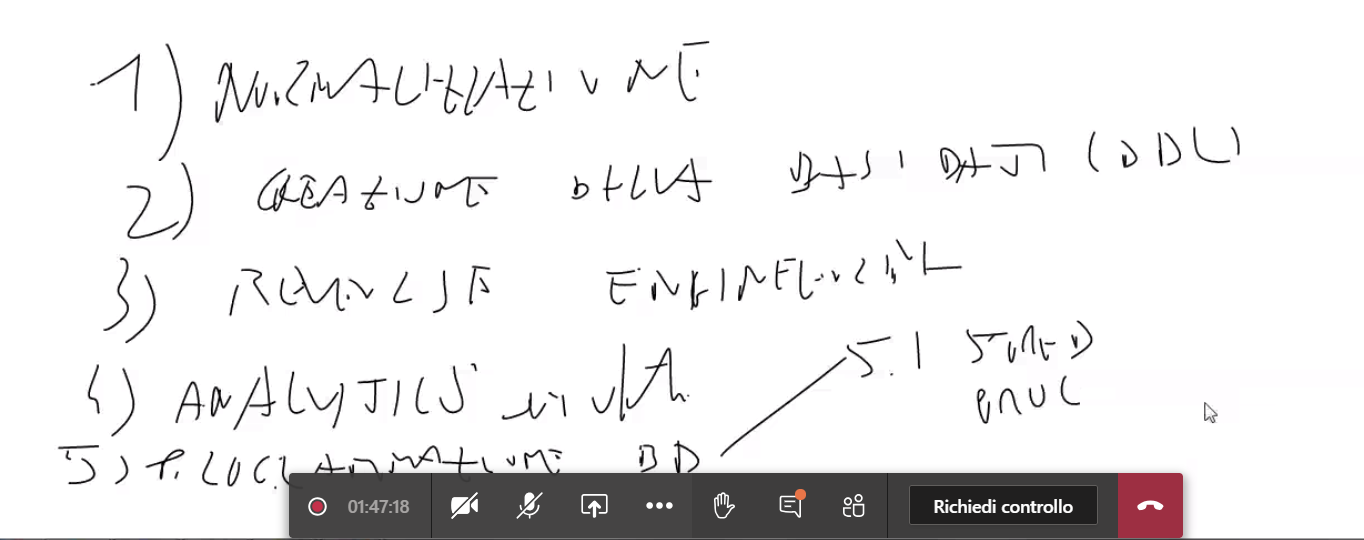 1) NORMALIZZAZIONE
2) CREAZIONE DELLA BASI DATI (DDL)
3) REVERSE ENGINEERING
4) ANALYTICS
5) PROGRAMMAZIONE BD
5.1 STORED PROC
01:47:18
Richiedi controllo